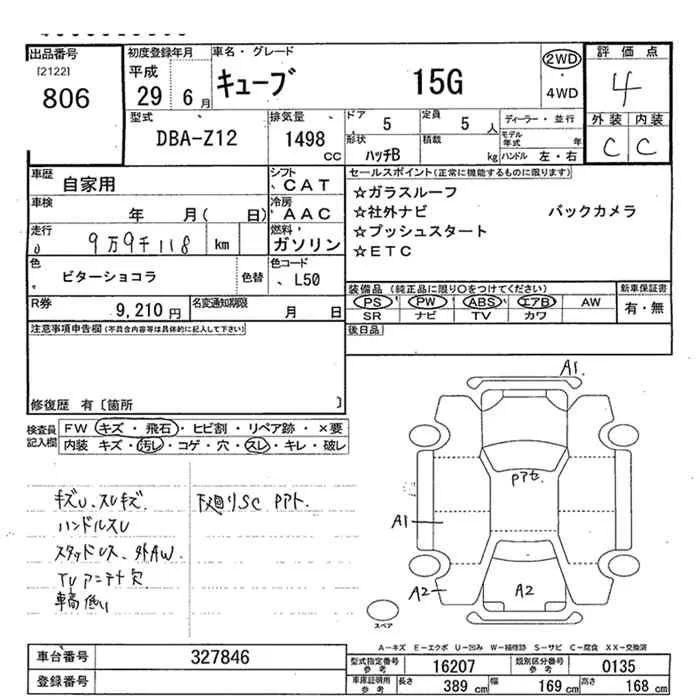 出品番号
[2122]
806
初度登録年月
平成
29年 6月
車名・グレード
キューブ 15G
2WD
・
4WD
評価点
4
外装 内装
C C
型式
DBA-Z12
排気量
1498
CC
ドア
5
定員
5人
形状
ハッチB
積載
kg
ディーラー・並行
モデル年式 年
ハンドル 左・右
車歴
自家用
シフト
、CAT
車検
年 月( 日)
冷房
、AAC
走行
9万9千118 km
燃料
ガソリン
色
ビターショコラ
色替
色コード
、L50
R券
9,210円
名変通知期限
月 日
セールスポイント(正常に機能するものに限ります)
☆ガラスルーフ
☆社外ナビ バックカメラ
☆プッシュスタート
☆ETC
装備品 (純正品に限り○をつけてください)
PS PW ABS エアB AW
SR ナビ TV カワ
新車保証書
有・無
後日品
注意事項申告欄(不具合内容等は具体的に記入して下さい)
修復歴 有〔箇所 〕
検査員記入欄
FW キズ・飛石・ヒビ割・リペア跡・×要
内装 キズ・汚レ・コゲ・穴・スレ・キレ・破レ
キズU、スレキズ
ハンドルスレ
スタッドレス、外AW
TVアンテナ欠
車高低い
下廻りSC
A1
A1
A2
A2
スペア
A-キズ E-エクボ U-凹み W-補修跡 S-サビ C-腐食 XX-交換済
車台番号
327846
登録番号
型式指定番号参考
16207
類別区分番号参考
0135
車庫証明用参考
長さ 389 cm
幅 169 cm
高さ 168 cm